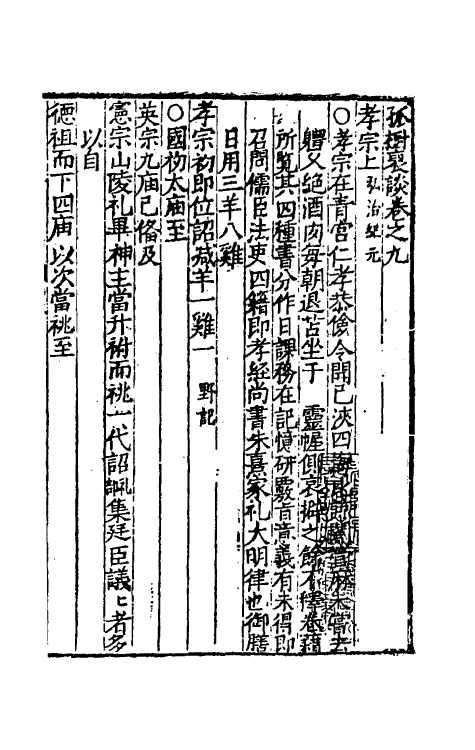 孤樹裒談卷之九
孝宗上 弘治紀元
○孝宗在青宮仁孝恭儉令聞已浹四
體又絕酒肉每朝退苫坐于 靈幄側哀擗之餘不釋卷藉
所覧其四種書分作日課務在記憶研覈旨意義有未得即
召問儒臣法吏四籍即孝經尚書朱熹家礼大明律也御膳
日用三羊八雞
孝宗初即位詔减羊一雞一 野記
○國初太廟至
英宗九庙已俻及
憲宗山陵礼畢神主當升祔而祧一代詔諷集廷臣議〻者多
以自
德祖而下四庙以次當祧至